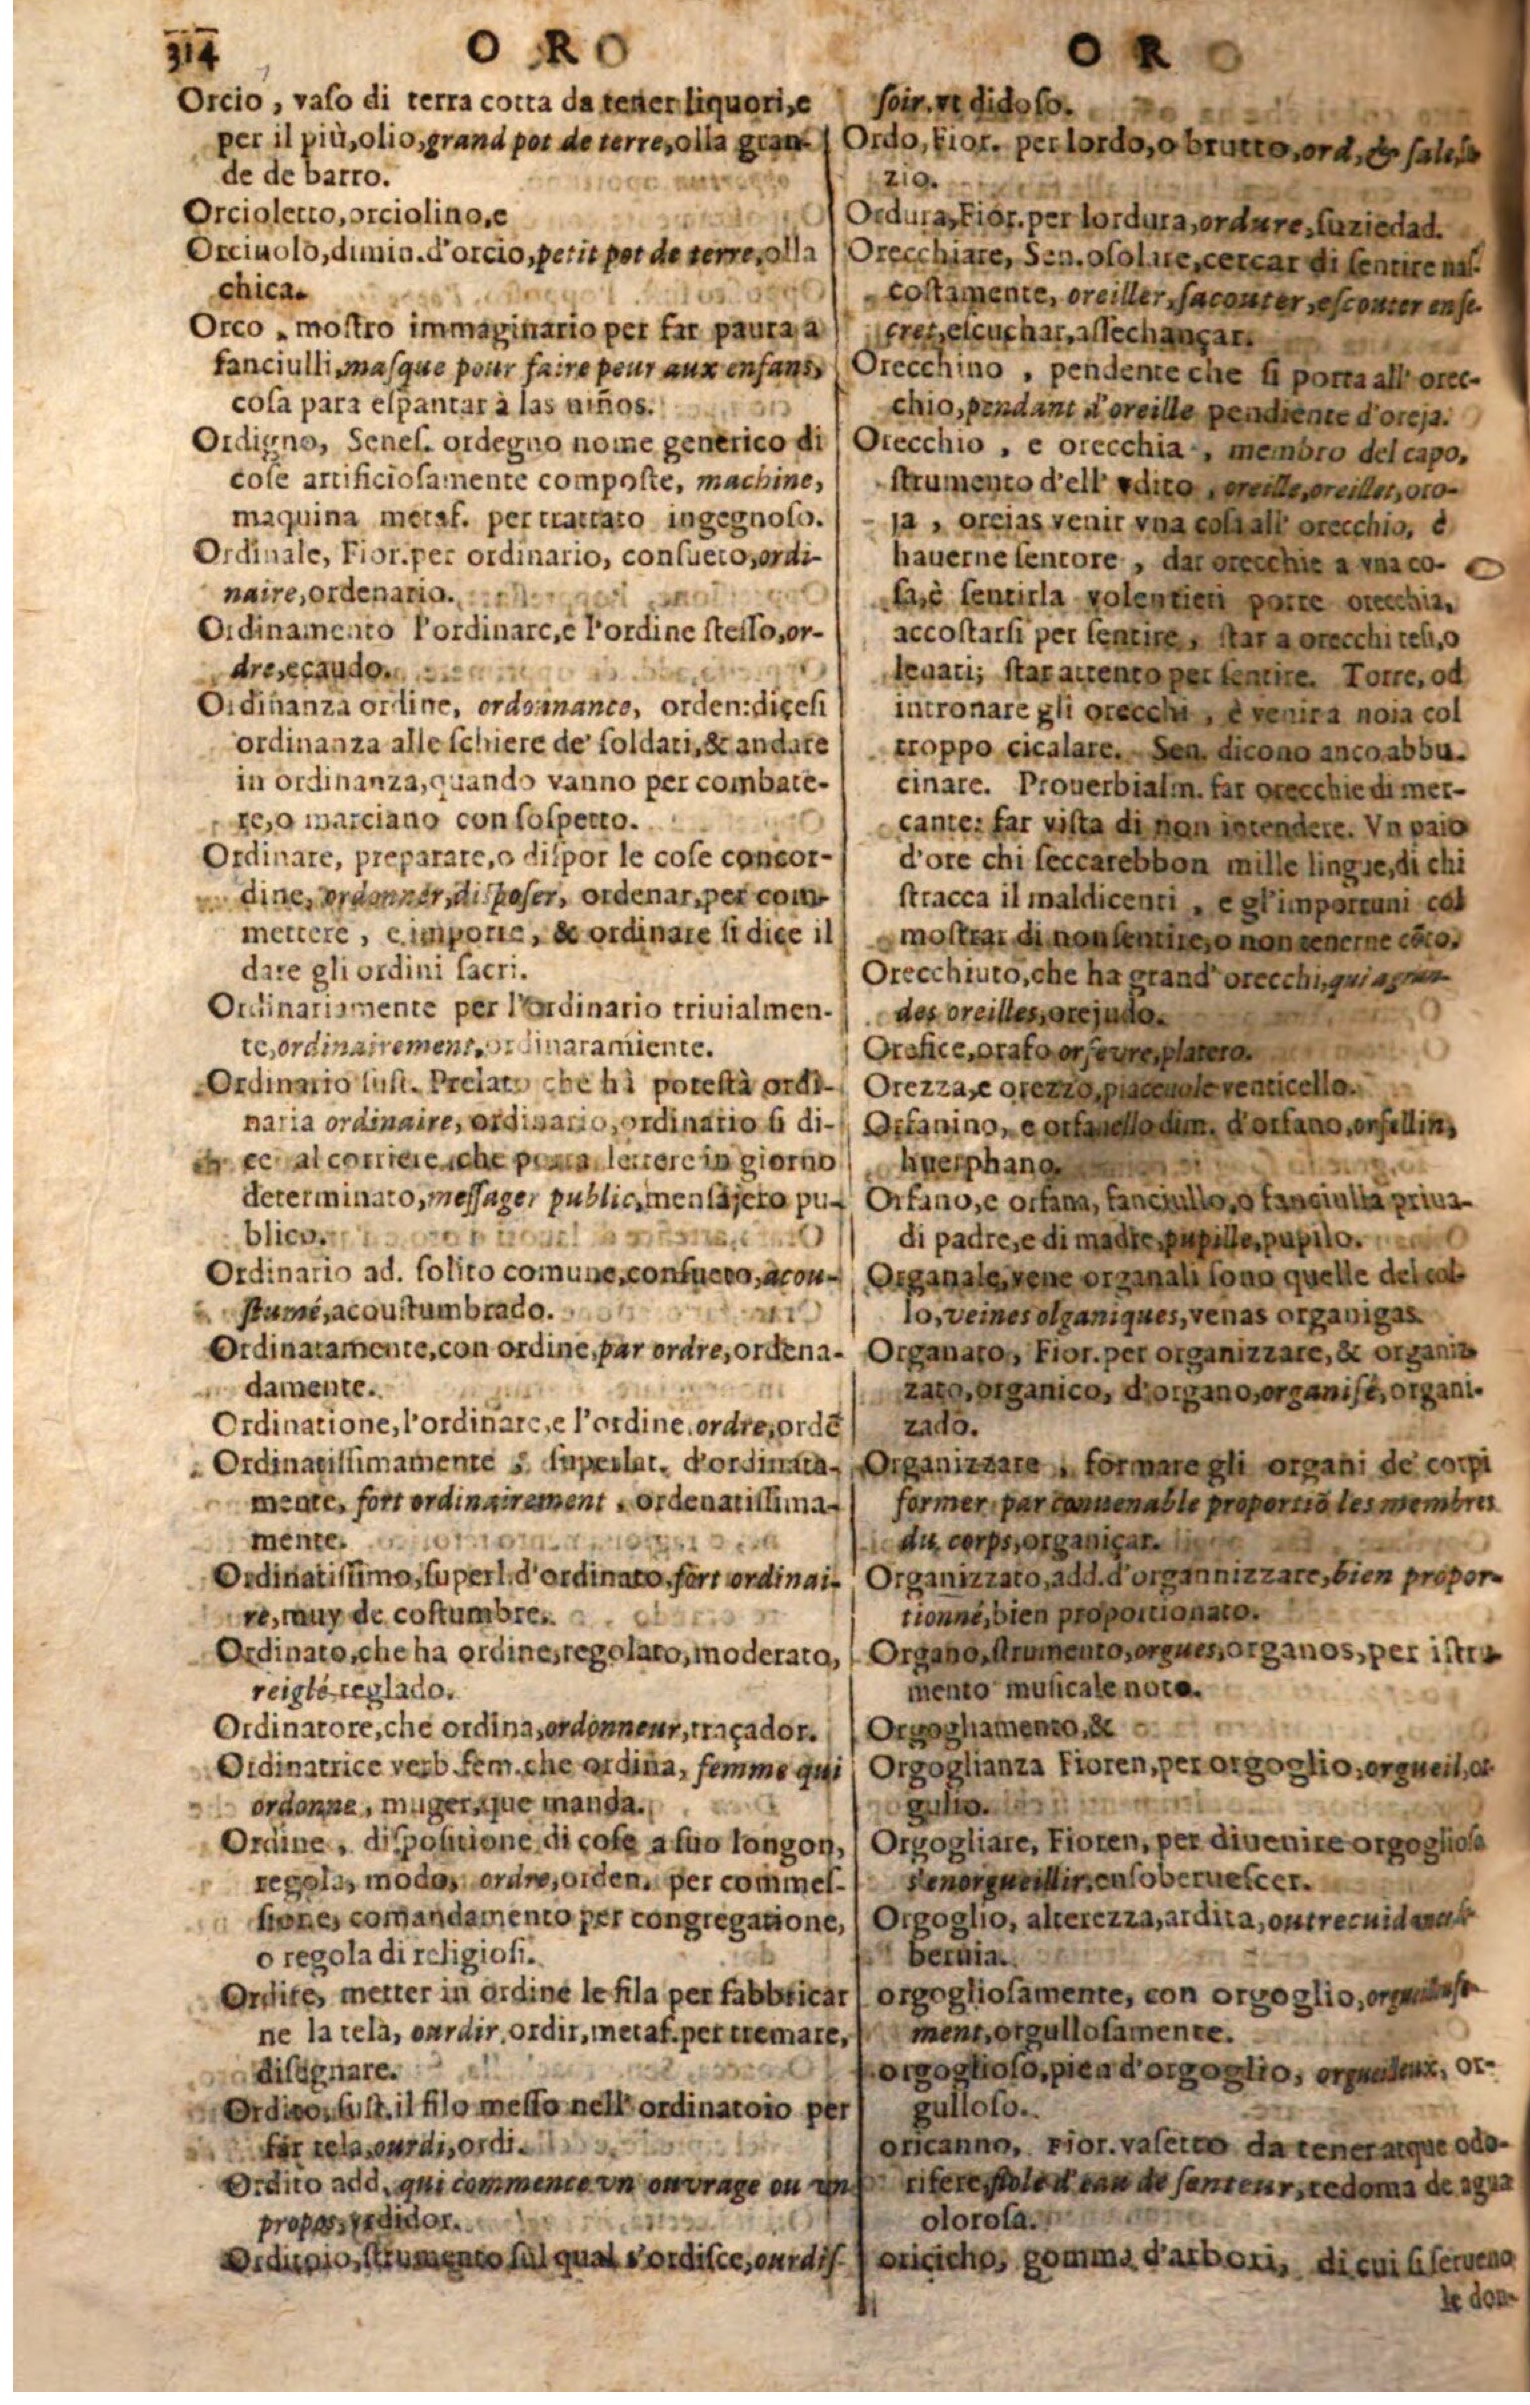 314 ORO ORO
Orcio, vaſo di terra cotta da tener liquori,e
per il più,olio,grand pot de terre,olla gran-
de de barro.
Orcioletto,orciolino,e
Orciuolo,dimin.d'orcio,petit pot de terre,olla
chica.
Orco, moſtro immaginario per far paura a
fanciulli,maſque pour faire peur aux enfans,
coſa para eſpantar à las niños.
Ordigno, Seneſ. ordegno nome generico di
coſe artificioſamente compoſte, machine,
maquina metaf. per trattato ingegnoſo.
Ordinale, Fior.per ordinario, conſueto,ordi-
naire,ordenario.
Ordinamento l'ordinare,e l'ordine ſteſſo,or-
dre,ecaudo.
Ordinanza ordine, ordonnance, orden:diceſi
ordinanza alle ſchiere de' ſoldati,& andare
in ordinanza,quando vanno per combate-
re,o marciano con ſoſpetto.
Ordinare, preparare,o diſpor le coſe concor-
dine, ordonner,diſpoſer, ordenar,per com-
mettere, e imporre, & ordinare ſi dice il
dare gli ordini ſacri.
Ordinariamente per l'ordinario triuialmen-
te,ordinairement,ordinaramiente.
Ordinario ſuſt. Prelato che hà poteſtà ordi-
naria ordinaire, ordinario,ordinario ſi di-
ce al corriere che porta lettere in giorno
determinato,meſſager public,menſajero pu-
blico.
Ordinario ad. ſolito comune,conſueto,acou-
ſtumé,acouſtumbrado.
Ordinatamente,con ordine,par ordre,ordena-
damente.
Ordinatione,l'ordinare,e l'ordine.ordre,ordē
Ordinatiſſimamente, ſuperlat. d'ordinata-
mente, fort ordinairement, ordenatiſſima-
mente.
Ordinatiſſimo,ſuperl.d'ordinato.fort ordinai-
re,muy de coſtumbre.
Ordinato,che ha ordine,regolato,moderato,
reiglé reglado.
Ordinatore,che ordina,ordonneur,traçador.
Ordinatrice verb.fem.che ordina, femme qui
ordonne, muger,que manda.
Ordine, diſpoſitione di coſe a ſuo longon,
regola, modo, ordre,orden. per commeſ-
ſione, comandamento per congregatione,
o regola di religioſi.
Ordire, metter in ordine le fila per fabbricar
ne la tela, ourdir,ordir,metaf.per tremare,
diſegnare.
Ordito,ſuſt.il filo meſſo nell' ordinatoio per
far tela,ourdi,ordi.
Ordito add. qui commence vn ouvrage ou vn
propos,vrdidor.
Orditoio,ſtrumento ſul qual s'ordiſce,ourdiſ-
ſoir.vrdidoſo.
Ordo, Fior. per lordo,o brutto,ord,& ſale,ſu
zio.
Ordura,Fior.per lordura,ordure,ſuziedad.
Orecchiare, Sen.oſolare,cercar di ſentire naſ-
coſtamente, oreiller,ſacouter,eſcouter en ſe-
cret,eſcuchar,aſſechançar.
Orecchino, pendente che ſi porta all' orec-
chio,pendant d'oreille pendiente d'oreja.
Orecchio, e orecchia, membro del capo,
ſtrumento d'ell' vdito, oreille,oreilles,oro-
ja, oreias venir vna coſa all' orecchio, è
hauerne ſentore, dar orecchie a vna co-
ſa,è ſentirla volentieri porre orecchia,
accoſtarſi per ſentire, ſtar a orecchi teſi,o
leuati; ſtar attento per ſentire. Torre, od
intronare gli orecchi, è venir a noia col
troppo cicalare. Sen. dicono anco abbu-
cinare. Prouerbialm. far orecchie di mer-
cante: far viſta di non intendere. Vn paio
d'ore chi ſeccarebbon mille lingue,di chi
ſtracca il maldicenti, e gl'importuni col
moſtrar di non ſentire,o non tenerne cōto.
Orecchiuto,che ha grand' orecchi,qui a gran-
des oreilles,orejudo.
Orefice,orafo orfevre,platero.
Orezza,e orezzo,piaceuole venticello.
Orfanino, e orfanello dim. d'orfano,orfellin,
huerphano.
Orfano,e orfana, fanciullo,o fanciulla priua-
di padre,e di madre,pupille,pupilo.
Organale,vene organali ſono quelle del col-
lo,veines olganiques,venas organigas.
Organato, Fior.per organizzare,& organiz-
zato,organico, d'organo,organiſé,organi-
zado.
Organizzare, formare gli organi de' corpi
former par conuenable proportiō les membres
du corps,organiçar.
Organizzato,add.d'organnizzare,bien propor-
tionné,bien proportionato.
Organo,ſtrumento,orgues,organos,per iſtru-
mento muſicale noto.
Orgogliamento,&
Orgoglianza Fioren,per orgoglio,orgueil,or-
gulio.
Orgogliare, Fioren, per divenire orgoglioſo
s'enorgueillir,enſoberueſcer.
Orgoglio, alterezza,ardita,outrecuidance
beruia.
orgoglioſamente, con orgoglio,orgueilleuſe-
ment,orgulloſamente.
orgoglioſo,pien d'orgoglio, orgueilleux, or-
gulloſo.
oricanno, Fior.vaſetto da tener acque odo-
rifere,fiole d'eau de ſenteur,redoma de agua
oloroſa.
oricicho, gomma d'arbori, di cui ſi ſerueno
le don-